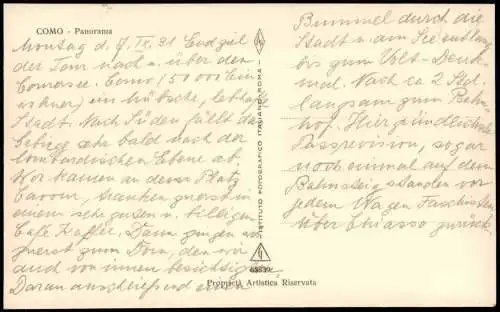 COMO - Panorama
Montag d. 7. IX. 31 Endziel
der Tour nach u. über den
Comersee. Como (50 000 Ein-
wohner) ein hübsche, lebhafte
Stadt. Nach Süden fällt das
Gebirge sehr bald nach der
lombardischen Ebene ab.
Wir kamen an den Platz
Cavour, tranken zuerst in
einem sehr guten u. billigen
Café Kaffee. Dann gingen wir
zuerst zum Dom, den wir
auch von innen besichtigten.
Daran anschließend einen
ISTITUTO FOTOGRAFICO ITALIANO ROMA
63539
Proprietà Artistica Riservata
Bummel durch die
Stadt u. am See entlang
bis zum Volt-Denk-
mal. Nach ca 2 Std.
langsam zum Bahn-
hof. Hier gründliche
Passrevision, sogar
noch einmal auf dem
Bahnsteig standen vor
jedem Wagen Faschisten.
Über Chiasso zurück.